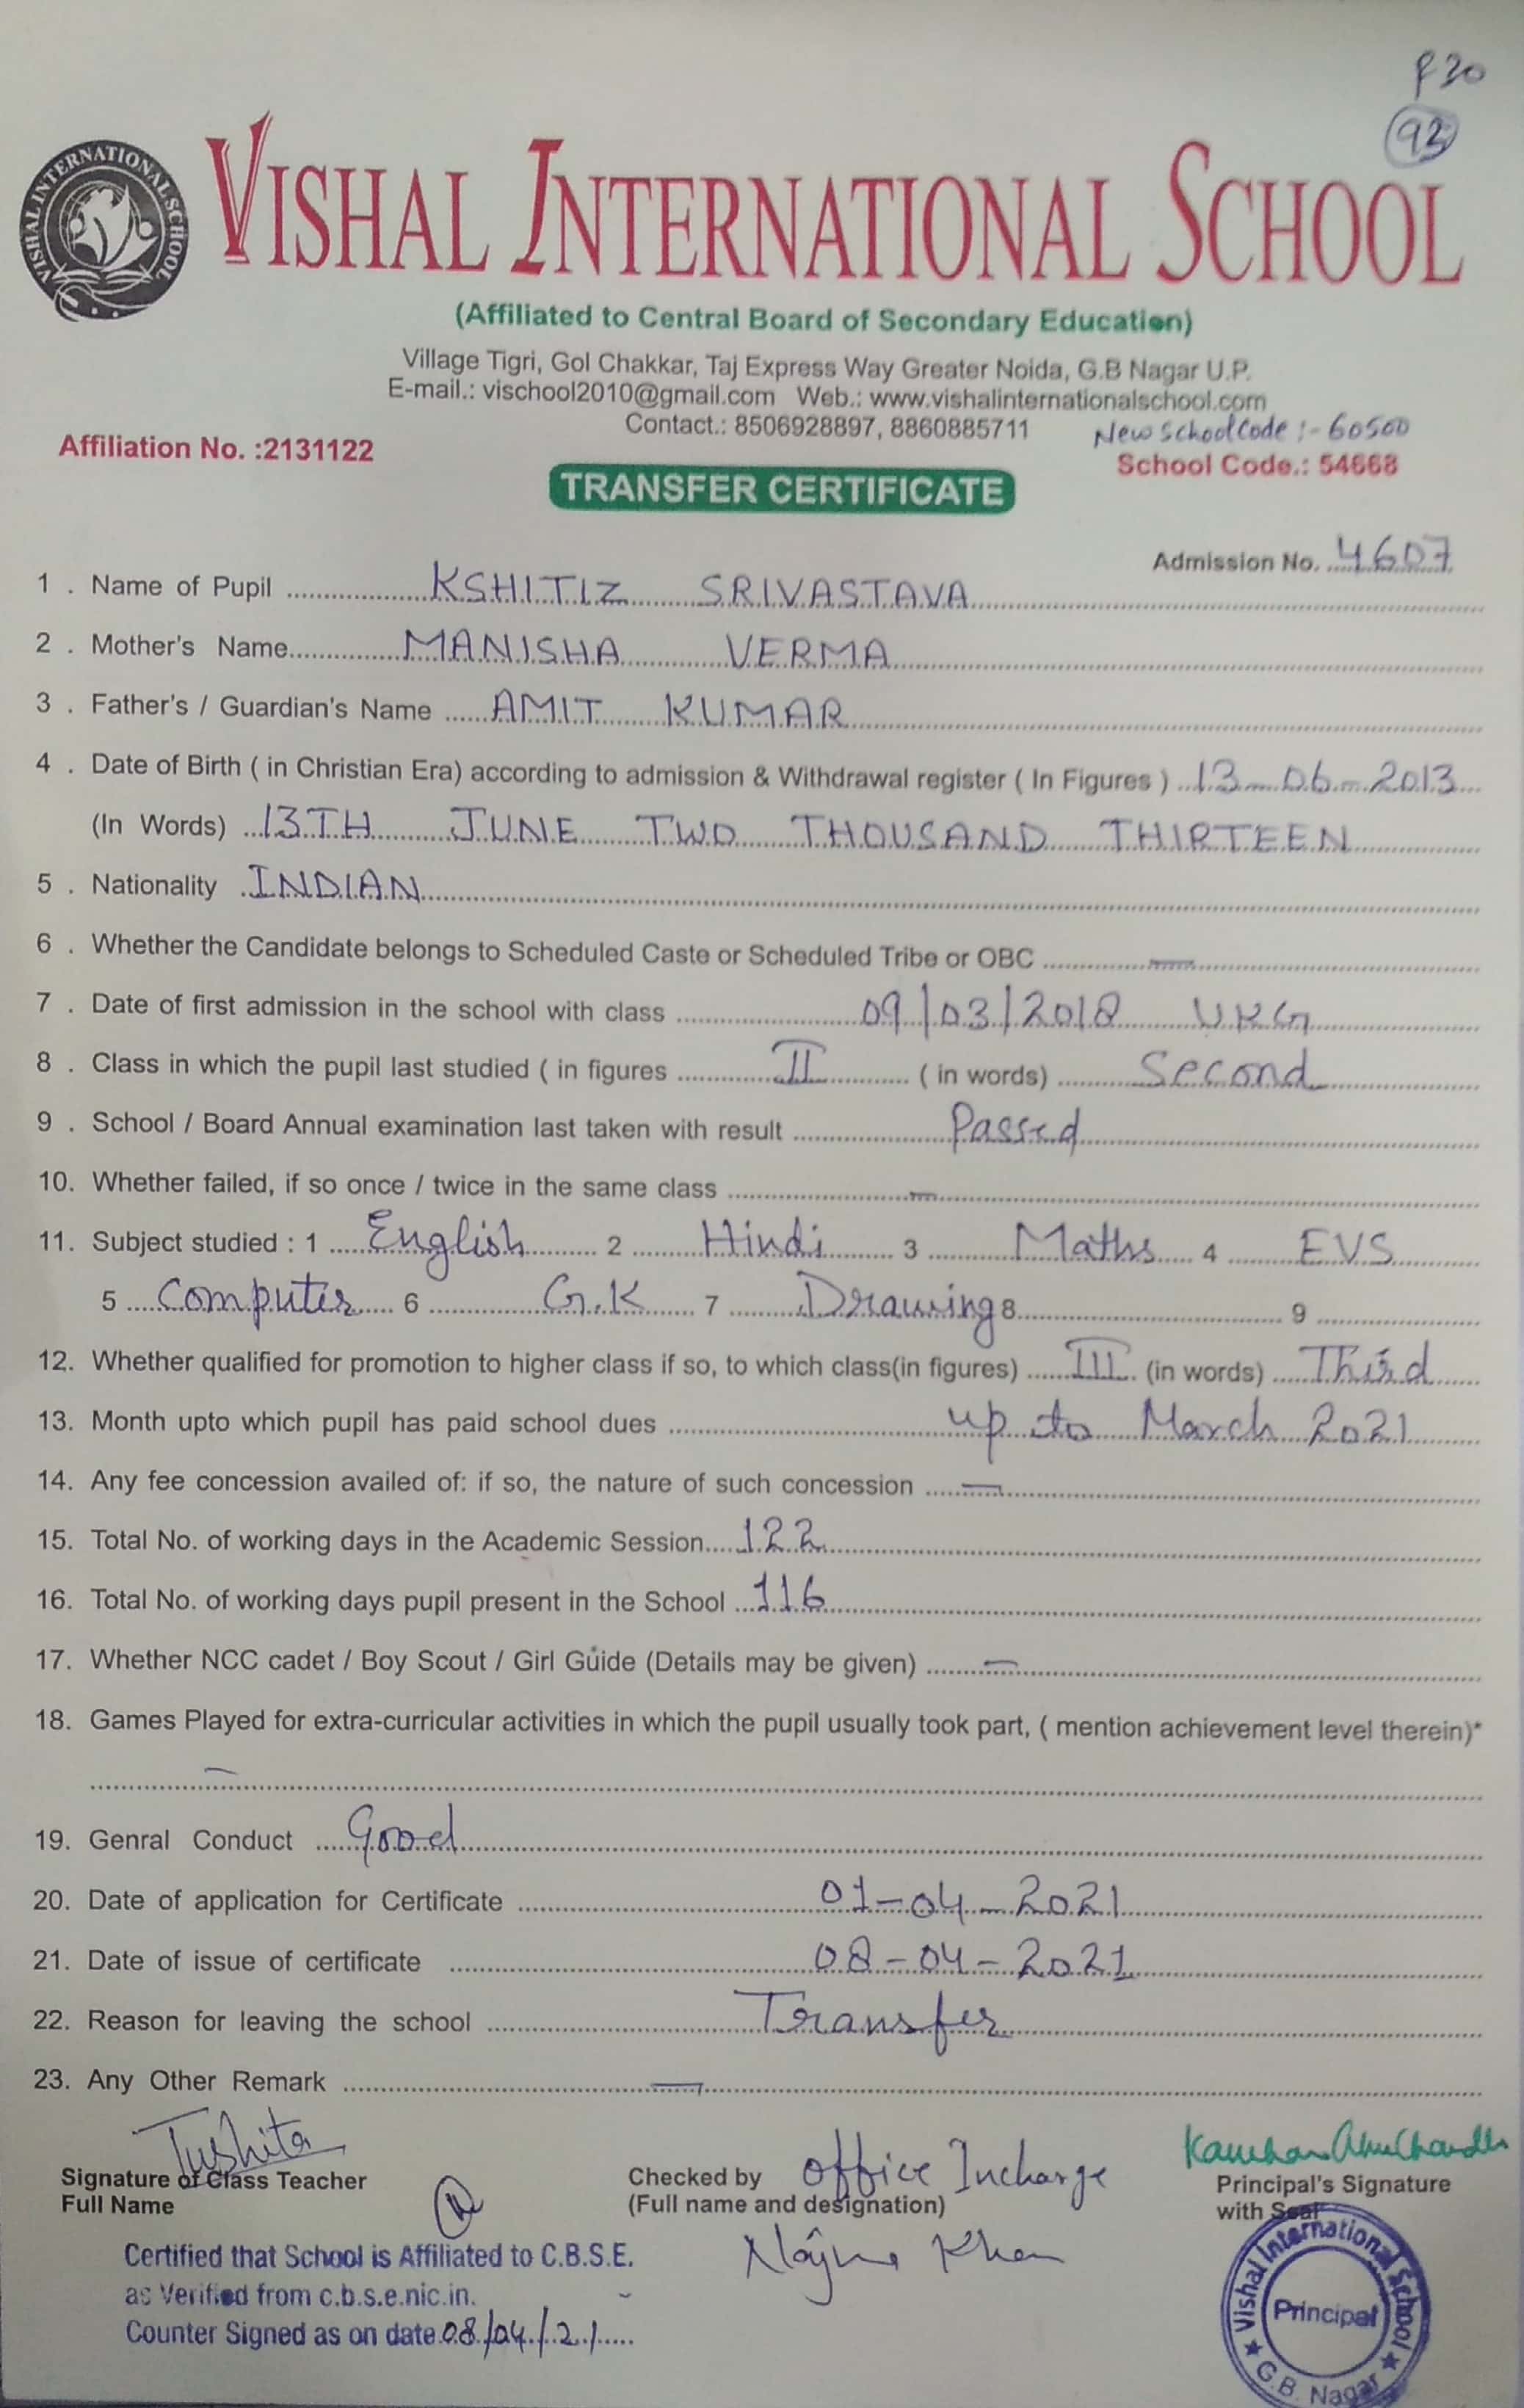 P30
92
VISHAL INTERNATIONAL SCHOOL
VISHAL INTERNATIONAL SCHOOL
(Affiliated to Central Board of Secondary Education)
Village Tigri, Gol Chakkar, Taj Express Way Greater Noida, G.B Nagar U.P.
E-mail.: vischool2010@gmail.com Web.: www.vishalinternationalschool.com
Contact.: 8506928897, 8860885711 New School Code :- 60500
Affiliation No. :2131122 School Code.: 54668
TRANSFER CERTIFICATE
Admission No. 4607
1 . Name of Pupil KSHITIZ SRIVASTAVA
2 . Mother's Name MANISHA VERMA
3 . Father's / Guardian's Name AMIT KUMAR
4 . Date of Birth ( in Christian Era) according to admission & Withdrawal register ( In Figures ) 13-06-2013
(In Words) 13TH JUNE TWO THOUSAND THIRTEEN
5 . Nationality INDIAN
6 . Whether the Candidate belongs to Scheduled Caste or Scheduled Tribe or OBC —
7 . Date of first admission in the school with class 09/03/2018 UKG
8 . Class in which the pupil last studied ( in figures II ( in words) Second
9 . School / Board Annual examination last taken with result Passed
10. Whether failed, if so once / twice in the same class —
11. Subject studied : 1 English 2 Hindi 3 Maths 4 EVS
5 Computer 6 G.K 7 Drawing 8 9
12. Whether qualified for promotion to higher class if so, to which class(in figures) III (in words) Third
13. Month upto which pupil has paid school dues up to March 2021
14. Any fee concession availed of: if so, the nature of such concession —
15. Total No. of working days in the Academic Session 122
16. Total No. of working days pupil present in the School 116
17. Whether NCC cadet / Boy Scout / Girl Guide (Details may be given) —
18. Games Played for extra-curricular activities in which the pupil usually took part, ( mention achievement level therein)*
—
19. Genral Conduct Good
20. Date of application for Certificate 01-04-2021
21. Date of issue of certificate 08-04-2021
22. Reason for leaving the school Transfer
23. Any Other Remark —
Tushita
Signature of Class Teacher Checked by office Incharge Principal's Signature
Full Name (Full name and designation) with Seal
Khan
Certified that School is Affiliated to C.B.S.E.
as Verified from c.b.s.e.nic.in.
Counter Signed as on date 08/04/21
Vishal International School
Principal
G.B. Nagar